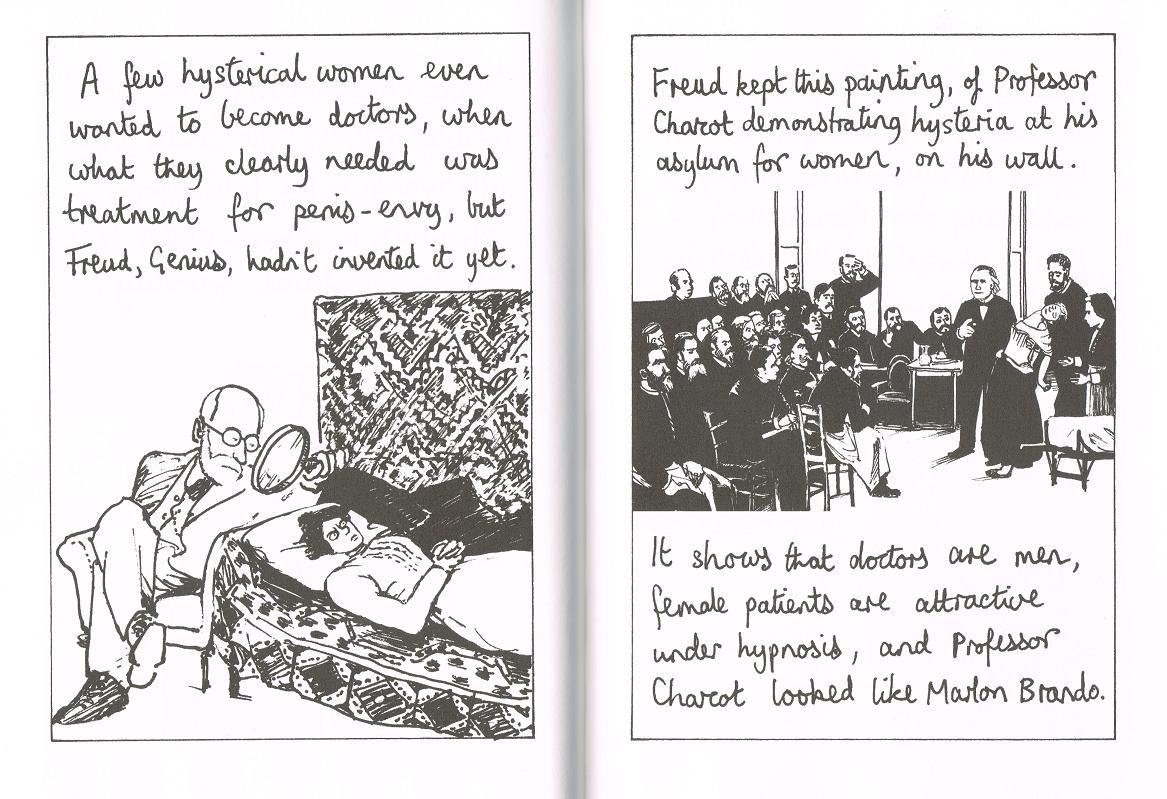 A few hysterical women even
wanted to become doctors, when
what they clearly needed was
treatment for penis-envy, but
Freud, Genius, hadn't invented it yet.
Freud kept this painting, of Professor
Charcot demonstrating hysteria at his
asylum for women, on his wall.
It shows that doctors are men,
female patients are attractive
under hypnosis, and Professor
Charcot looked like Marlon Brando.